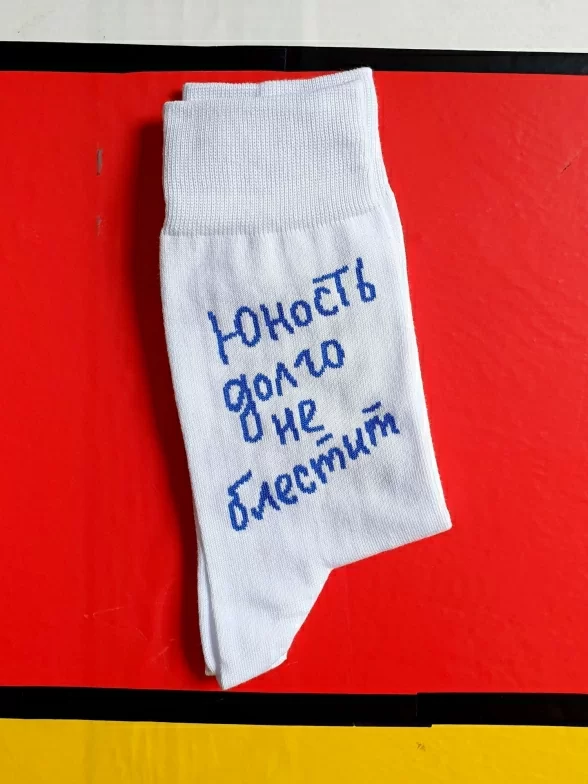 Юность
долго
не
блестит